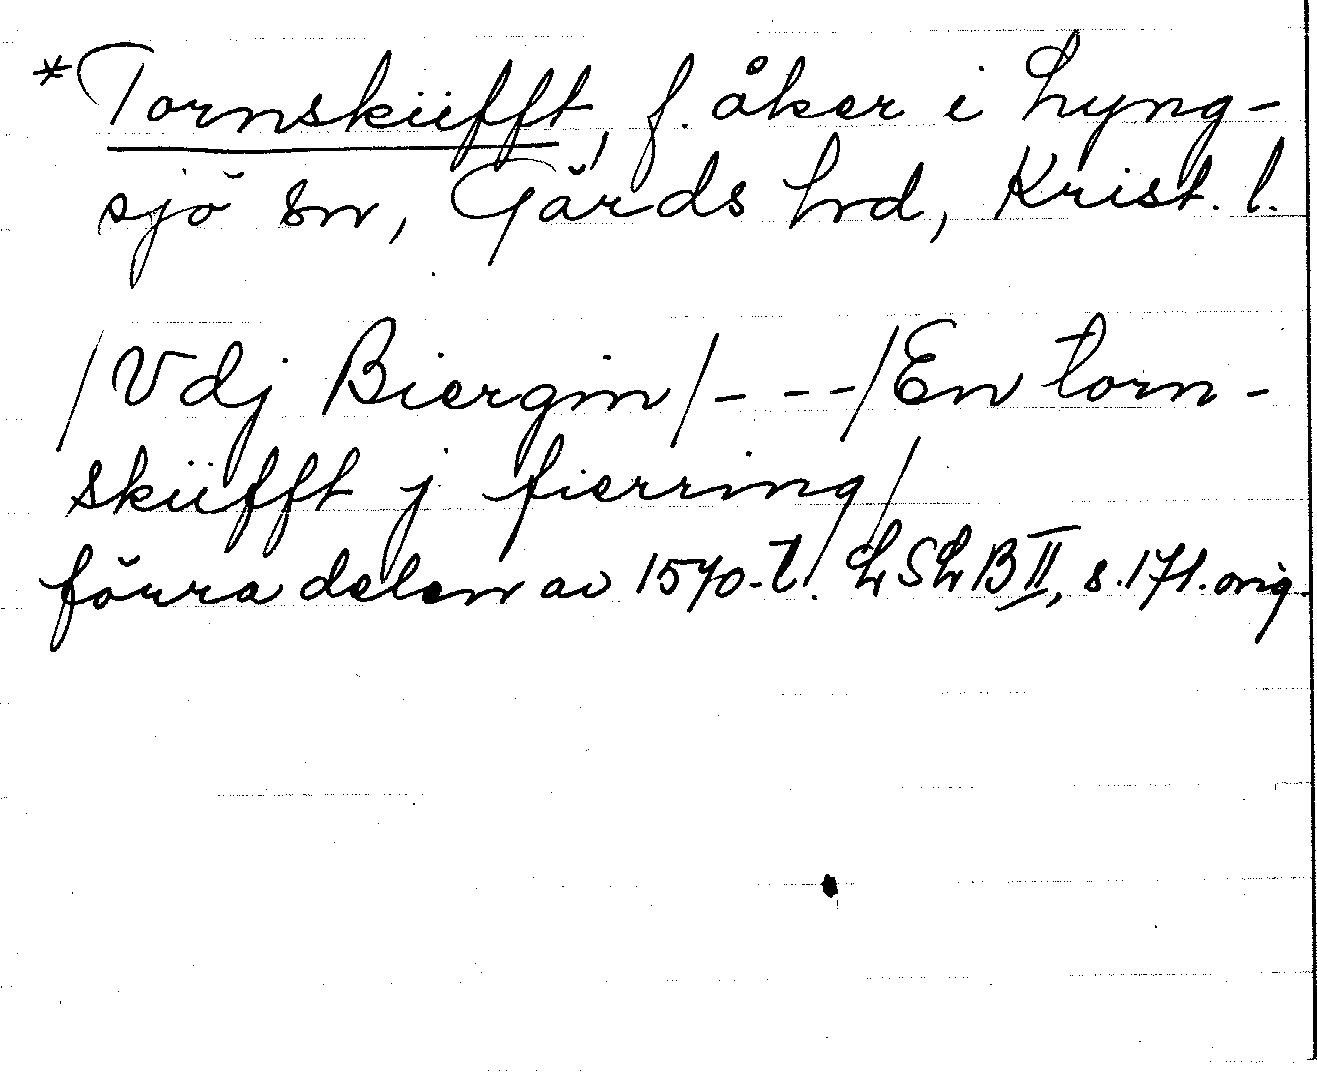 *Tornskiüfft, f. åker i Lyng-
sjö sn, Gärds hd, Krist. l.
/Vdj Biergin/---/En torn-
skiüfft j fierring/
förra delen av 1570-t. LSLB II, s. 171. orig.